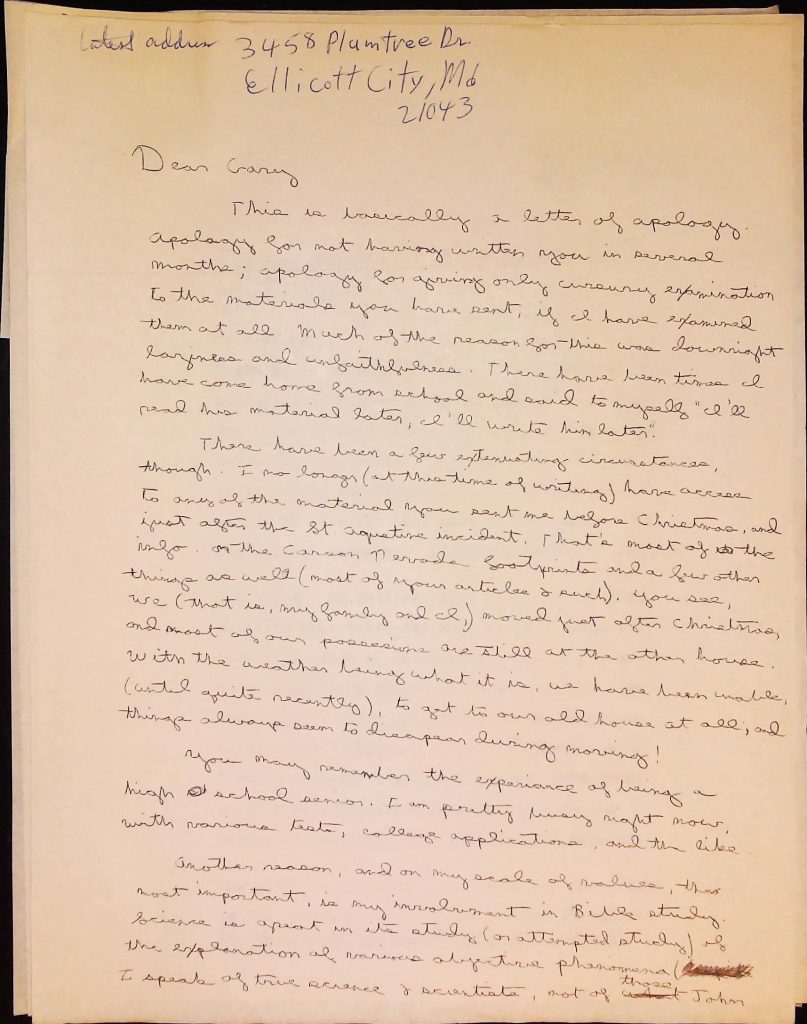 Latest address 3458 Plumtree Dr.
Ellicott City, Md
21043
Dear Gary
This is basically a letter of apology.
apology for not having written you in several
months; apology for giving only cursury examination
to the materials you have sent, if I have examined
them at all. Much of the reason for this was downright
laziness and unfaithfulness. There have been times I
have come home from school and said to myself "I'll
read his material later, I'll write him later".
There have been a few extenuating circumstances,
though. I no longer (at this time of writing) have access
to any of the material you sent me before Christmas, and
just after the St. Agustine incident. That's most of the
info. on the Carson Nevada footprints and a few other
things as well (most of your articles & such). You see,
we (that is, my family and I,) moved just after Christmas,
and most of our possesions are still at the other house.
With the weather being what it is, we have been unable,
(until quite recently), to get to our old house at all; and
things always seem to disapear during moving!
You may remember the experiance of being a
high school senior. I am pretty busy right now,
with various tests, college applications, and the like.
Another reason, and on my scale of values, the
most important, is my involvment in Bible study.
Science is great in its study (or attempted study) of
the explanation of various objective phenomena (
I speak of true science & scientists, not of those John